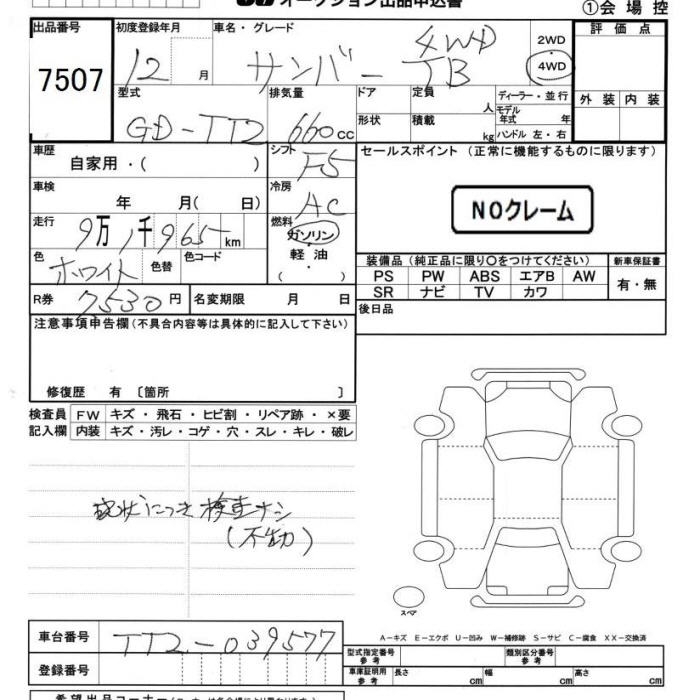 オークション出品申込書
①会場控
出品番号 初度登録年月 車名・グレード 評価点
7507 12 月 サンバー 4WD TB 2WD 4WD
型式 排気量 ドア 定員 人 ディーラー・並行 外装 内装
モデル年式 年
GD-TT2 660 CC 形状 積載 kg ハンドル 左・右
車歴 自家用・( ) シフト F5 セールスポイント (正常に機能するものに限ります)
車検 年 月( 日) 冷房 AC
NOクレーム
走行 9万 1千 965 km 燃料 ガソリン
軽油
( )
色 ホワイト 色替 色コード
装備品(純正品に限り○をつけてください) 新車保証書
PS PW ABS エアB AW 有・無
SR ナビ TV カワ
R券 7530 円 名変期限 月 日
後日品
注意事項申告欄(不具合内容等は具体的に記入して下さい)
修復歴 有 〔箇所 〕
検査員 FW キズ・飛石・ヒビ割・リペア跡・×要
記入欄 内装 キズ・汚レ・コゲ・穴・スレ・キレ・破レ
現状につき検査ナシ
(不動)
スペア
A-キズ E-エクボ U-凹み W-補修跡 S-サビ C-腐食 XX-交換済
車台番号 TT2-039577
型式指定番号 参考 類別区分番号 参考
登録番号
車庫証明用 参考 長さ cm 幅 cm 高さ cm
希望出品コーナー